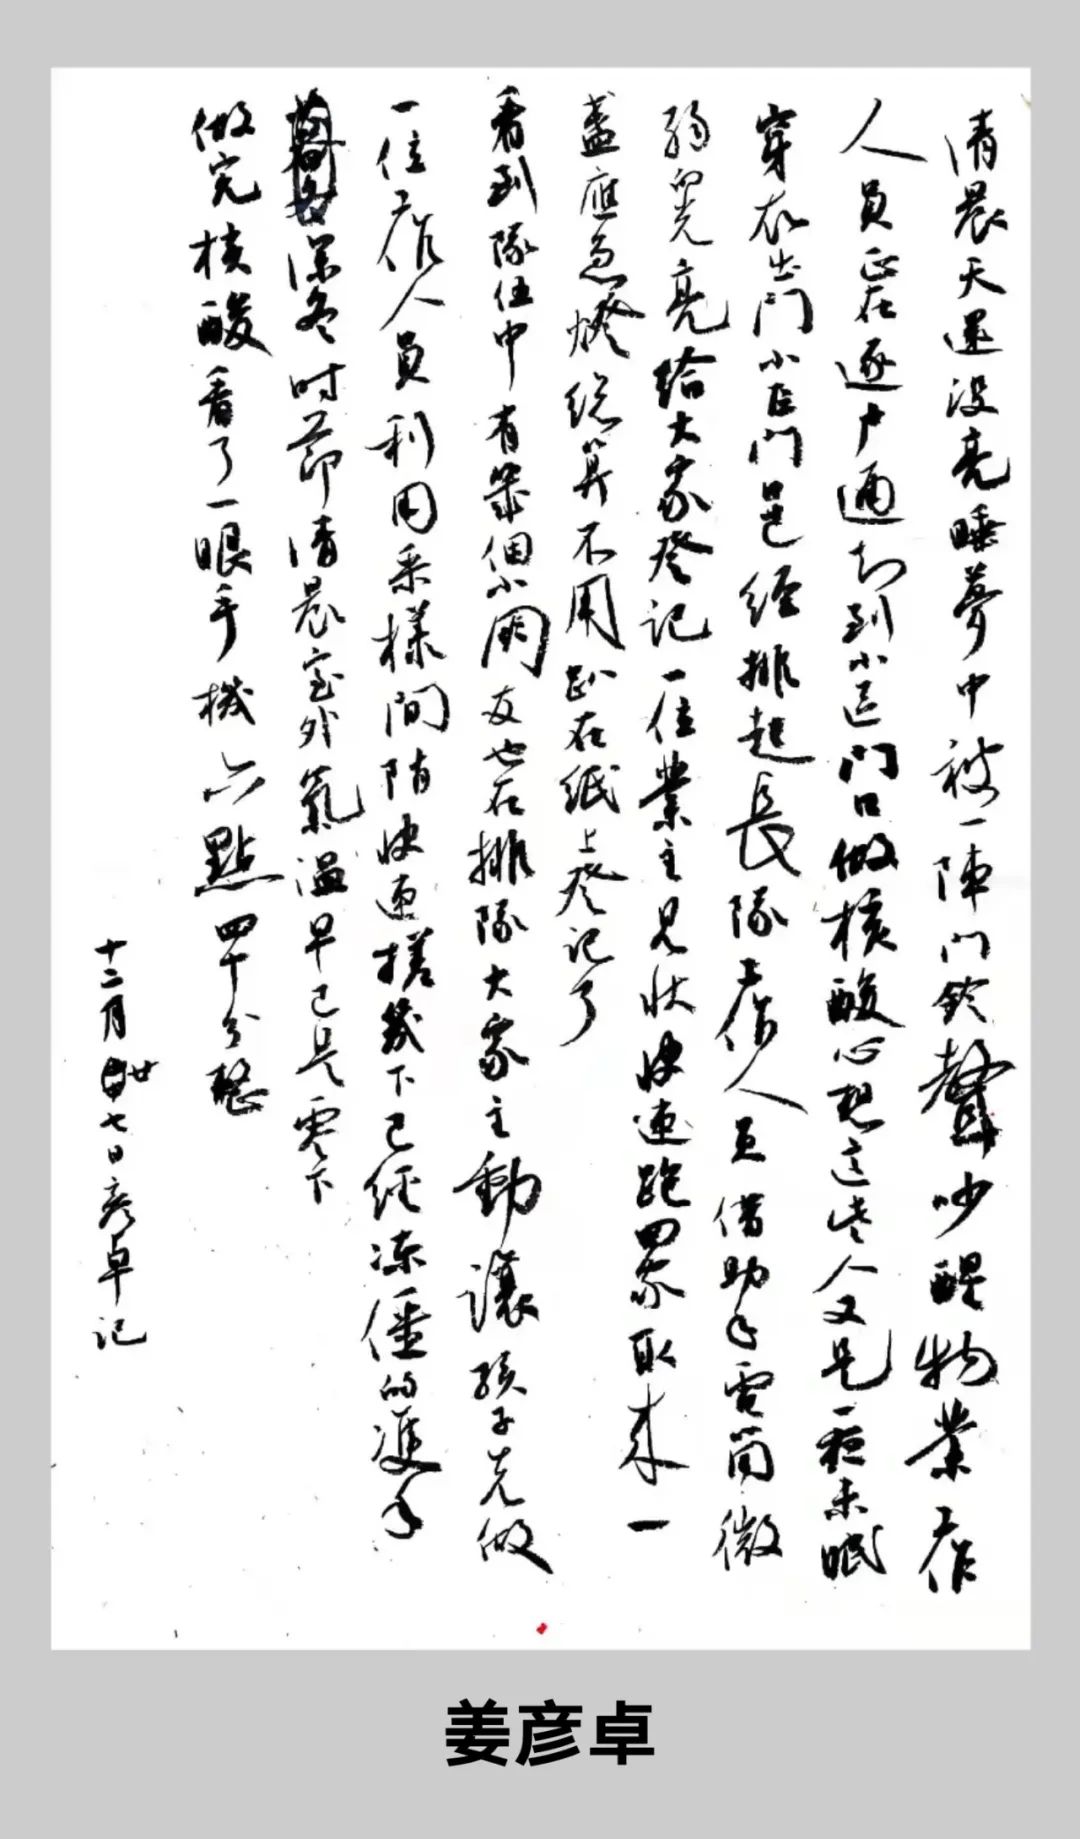 清晨天還没亮睡夢中被一陣門鈴聲吵醒物業工作
人員正在逐户通知到小区門口做核酸心想這些人又是一夜未眠
穿衣出門小区門口已經排起長隊工作人員借助手電筒微
弱的光亮給大家登記一位業主見狀快速跑回家取来一
盞應急燈總算不用趴在纸上登記了
看到隊伍中有幾個小朋友也在排隊大家主動讓孩子先做
一位工作人員利用采樣間隙快速搓幾下已經凍僵的雙手
深冬时節清晨室外氣温早已是零下
做完核酸看了一眼手機六點四十分整
十二月廿七日彦卓记
姜彦卓